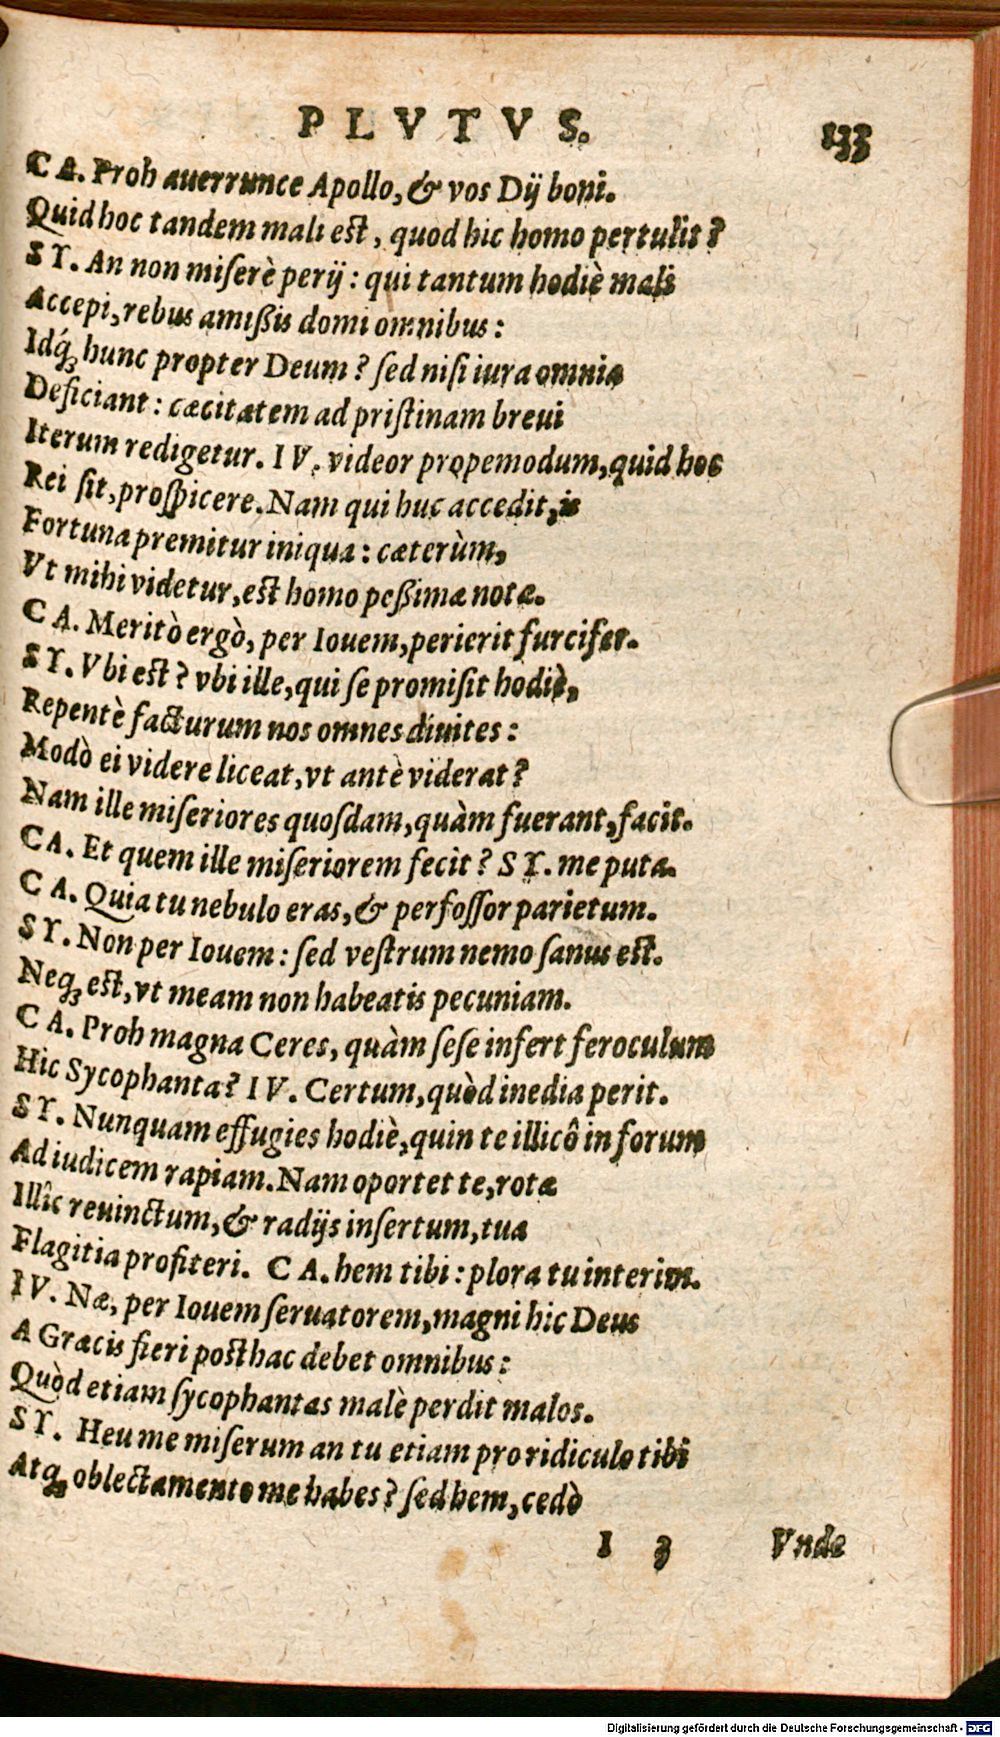 PLVTVS.
133
CA. Proh auerrunce Apollo, & vos Dij boni.
Quid hoc tandem mali est, quod hic homo pertulit?
SY. An non miserè perij: qui tantum hodiè mali
Accepi, rebus amißis domi omnibus:
Idq́; hunc propter Deum? sed nisi iura omnia
Deficiant: cæcitatem ad pristinam breui
Iterum redigetur. IV. videor propemodum, quid hoc
Rei sit, prospicere. Nam qui huc accedit, is
Fortuna premitur iniqua: cæterùm,
Vt mihi videtur, est homo peßimæ notæ.
CA. Meritò ergò, per Iouem, perierit furcifer.
SY. Vbi est? vbi ille, qui se promisit hodiè,
Repentè facturum nos omnes diuites:
Modò ei videre liceat, vt antè viderat?
Nam ille miseriores quosdam, quàm fuerant, facit.
CA. Et quem ille miseriorem fecit? SY. me puta.
CA. Quia tu nebulo eras, & perfossor parietum.
SY. Non per Iouem: sed vestrum nemo sanus est.
Neq; est, vt meam non habeatis pecuniam.
CA. Proh magna Ceres, quàm sese infert feroculum
Hic Sycophanta? IV. Certum, quòd inedia perit.
SY. Nunquam effugies hodiè, quin te illicô in forum
Ad iudicem rapiam. Nam oportet te, rotæ
Illîc reuinctum, & radijs insertum, tua
Flagitia profiteri. CA. hem tibi: plora tu interim.
IV. Næ, per Iouem seruatorem, magni hic Deus
A Græcis fieri posthac debet omnibus:
Quòd etiam sycophantas malè perdit malos.
SY. Heu me miserum an tu etiam pro ridiculo tibi
Atq; oblectamento me habes? sed hem, cedò
I 3 Vnde
Digitalisierung gefördert durch die Deutsche Forschungsgemeinschaft - DFG